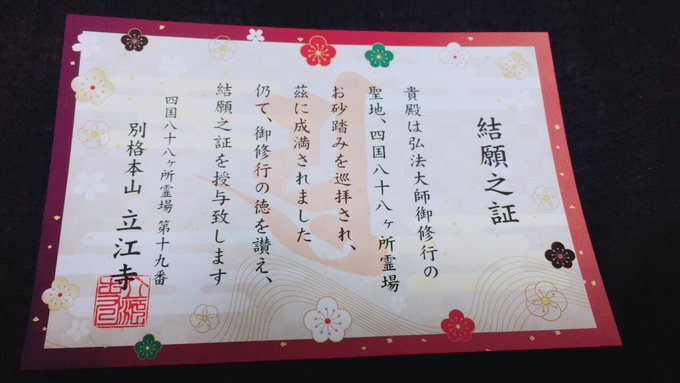 結願之証
貴殿は弘法大師御修行の
聖地、四国八十八ヶ所霊場
お砂踏みを巡拝され、
茲に成満されました
仍て、御修行の徳を讃え、
結願之証を授与致します
四国八十八ヶ所霊場 第十九番
別格本山 立江寺